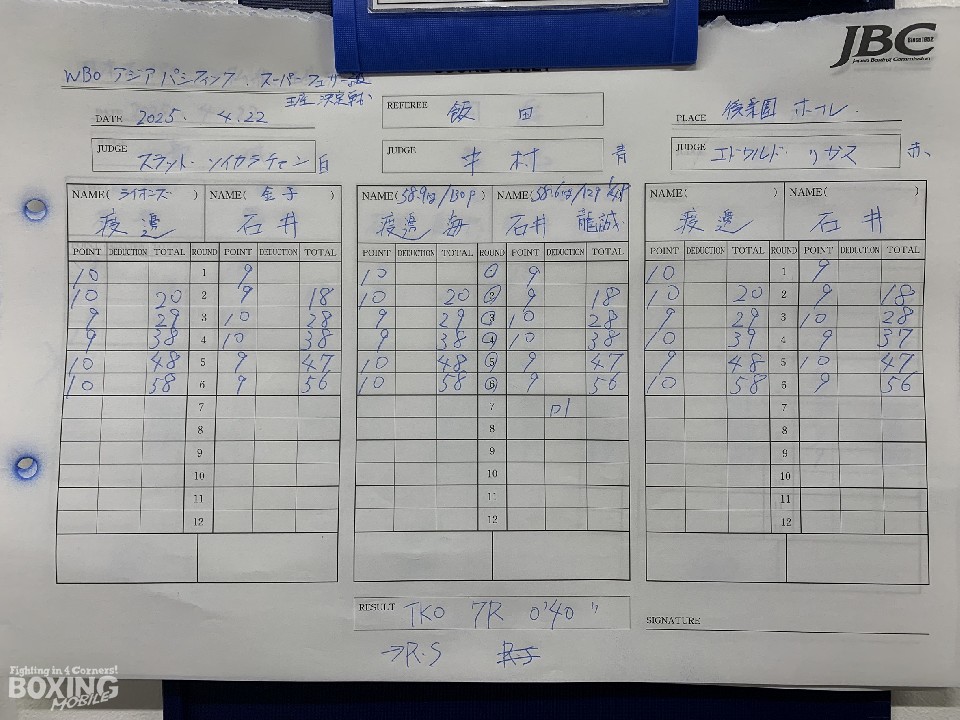 JBC
Since 1952
Japan Boxing Commission
SCORE SHEET
WBO アジアパシフィック スーパーフェザー級
王座決定戦
DATE 2025. 4.22
REFEREE 飯田
PLACE 後楽園ホール
JUDGE スラット・ソイカラチャン 白
JUDGE 中村 青
JUDGE エドワルド・リガス 赤
NAME( ライオンズ ) NAME( 金子 )
渡邊 石井
NAME( 58.9kg/130p ) NAME( 58.6kg/129p
渡邊 海 石井 龍誠
NAME( ) NAME( )
渡邊 石井
POINT DEDUCTION TOTAL ROUND POINT DEDUCTION TOTAL
10 1 9
10 20 2 9 18
9 29 3 10 28
9 38 4 10 38
10 48 5 9 47
10 58 6 9 56
7
8
9
10
11
12
POINT DEDUCTION TOTAL ROUND POINT DEDUCTION TOTAL
10 1 9
10 20 2 9 18
9 29 3 10 28
9 38 4 10 38
10 48 5 9 47
10 58 6 9 56
7 D1
8
9
10
11
12
POINT DEDUCTION TOTAL ROUND POINT DEDUCTION TOTAL
10 1 9
10 20 2 9 18
9 29 3 10 28
10 39 4 9 37
9 48 5 10 47
10 58 6 9 56
7
8
9
10
11
12
RESULT TKO 7R 0'40"
→R.S
SIGNATURE
Fighting in 4 Corners!
BOXING
MOBILE